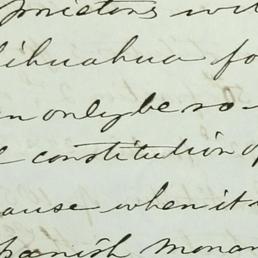 wi
Chihuahua fo
n only be so-
constitution of
ause when it
panish Monar